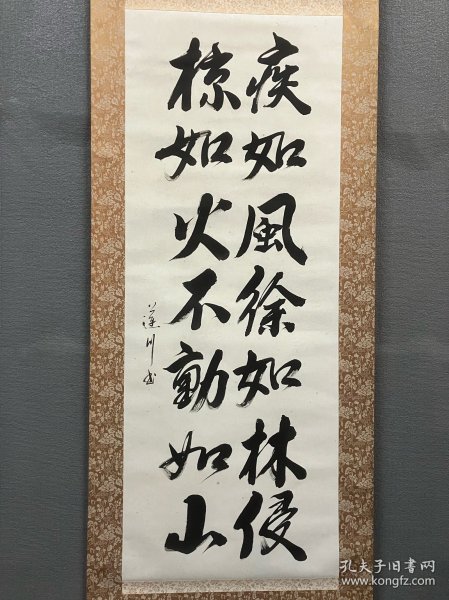 疾如風徐如林侵
掠如火不動如山
蓮川書
孔夫子旧書网
www.kongfz.com